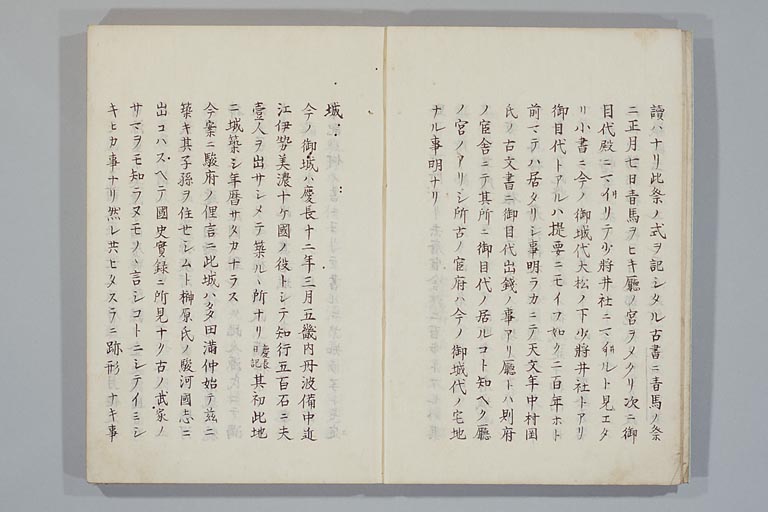 讀ハナリ此祭ノ式ヲ記シタル古書ニ青馬ノ祭
ニ正月七日青馬ヲヒキ廳ノ宮ヲメクリ次ニ御
目代殿ニマイリテ少將井社ニマイルト見エタ
リ小書ニ今ノ御城代大松ノ下少將井社トアリ
御目代トアルハ提要ニモイフ如ク二百年ホト
前マテハ居タリシ事明ラカニテ天文年中村岡
氏ノ古文書ニ御目代出錢ノ事アリ廳トハ則府
ノ官舎ニテ其所ニ御目代ノ居ルコト知ヘク廳
ノ宮ノアリシ所古ノ官府ハ今ノ御城代ノ宅地
ナル事明ナリ
城
今ノ御城ハ慶長十二年三月五畿内丹波備中近
江伊勢美濃十ケ國ノ役トシテ知行五百石ニ夫
壹人ヲ出サシメテ築ルヽ所ナリ慶長日記其初此地
ニ城築シ年暦サタカナラス
今案ニ駿府ノ俚言ニ此城ハ多田満仲始テ茲ニ
築キ其子孫ヲ住セシムト榊原氏ノ駿河國志ニ
出コハスヘテ國史實録ニ所見ナク古ノ武家ノ
サマヲモ知ラヌモノヽ言シコトニシテイミシ
キヒカ事ナリ然レ共ヒタスラニ跡形ナキ事